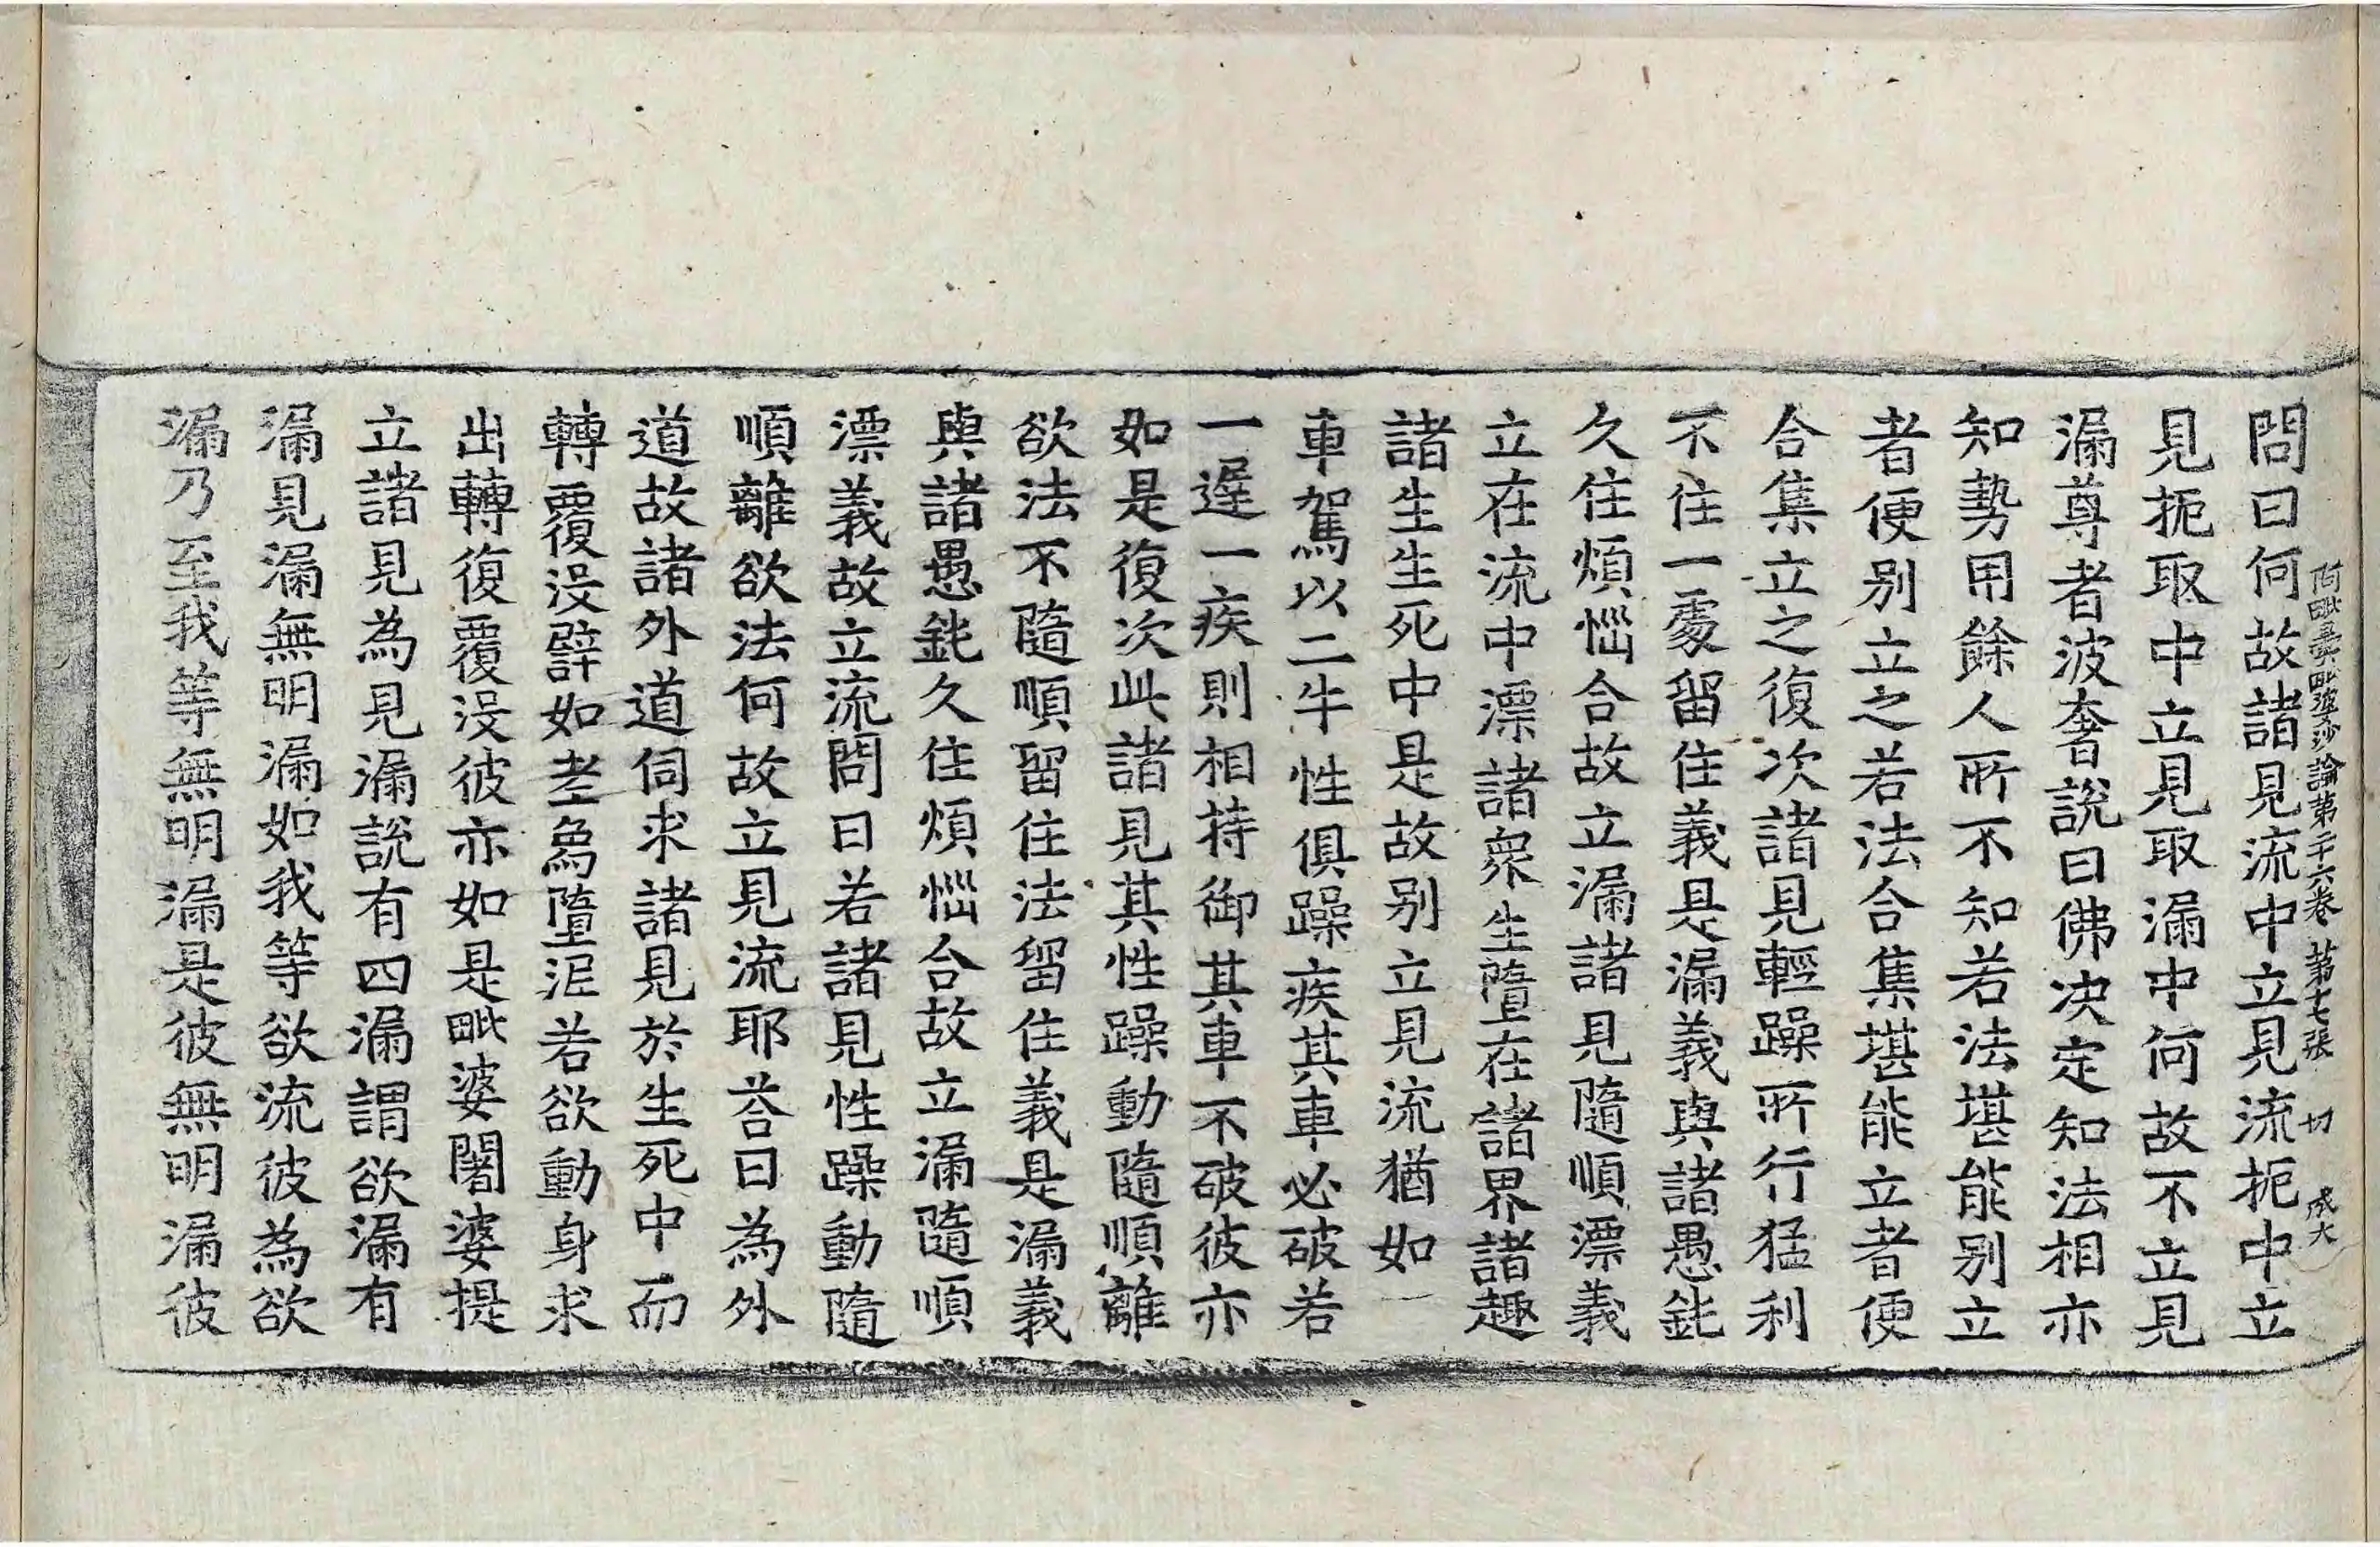 阿毗曇毗婆沙論第二十六卷 第七張 切 成大
問曰何故諸見流中立見流扼中立
見扼取中立見取漏中何故不立見
漏尊者波奢說曰佛决定知法相亦
知勢用餘人所不知若法堪能别立
者便别立之若法合集堪能立者便
合集立之復次諸見輕躁所行猛利
不住一處留住義是漏義與諸愚鈍
久住煩惱合故立漏諸見隨順漂義
立在流中漂諸衆生墮在諸界諸趣
諸生生死中是故别立見流猶如一
車駕以二牛性俱躁疾其車必破若
一遲一疾則相持御其車不破彼亦
如是復次此諸見其性躁動隨順離
欲法不隨順留住法留住義是漏義
與諸愚鈍久住煩惱合故立漏隨順
漂義故立流問曰若諸見性躁動隨
順離欲法何故立見流耶荅曰為外
道故諸外道伺求諸見於生死中而
轉覆没譬如老象墮泥若欲動身求
出轉復覆没彼亦如是毗婆闍婆提
立諸見為見漏說有四漏謂欲漏有
漏見漏無明漏如我等欲流彼為欲
漏乃至我等無明漏是彼無明漏彼